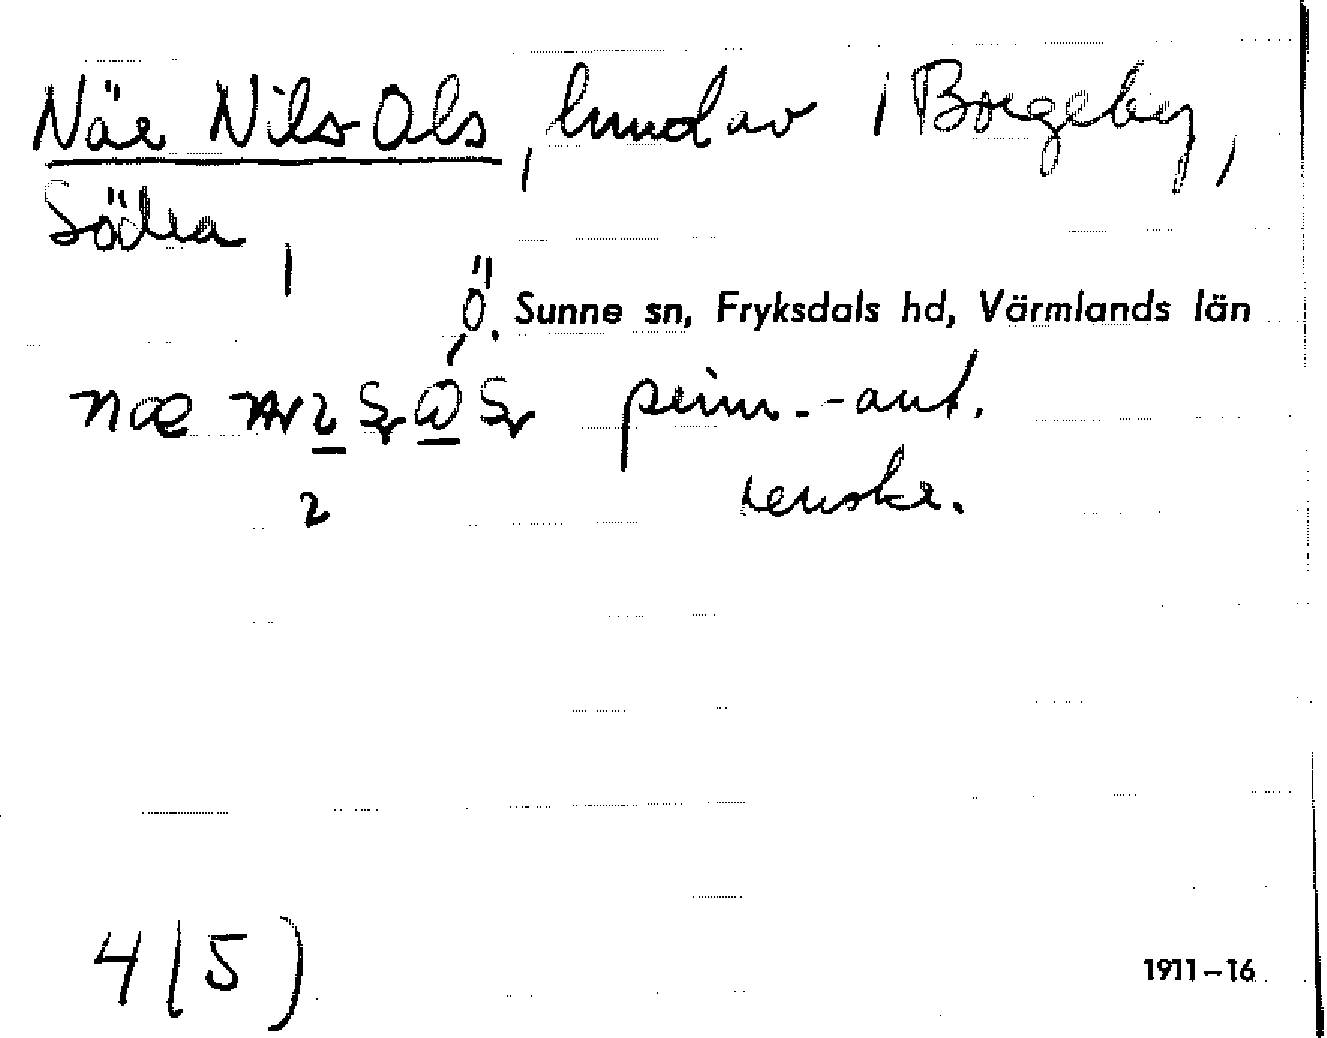 När Nils-Ols, hmd av i Borgeby,
Södra,
Ö. Sunne sn, Fryksdals hd, Värmlands län
prim.-ant.
renskr.
4(5)
1911–16